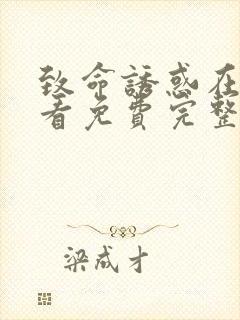 致命誘惑在
看免費完整
梁成才